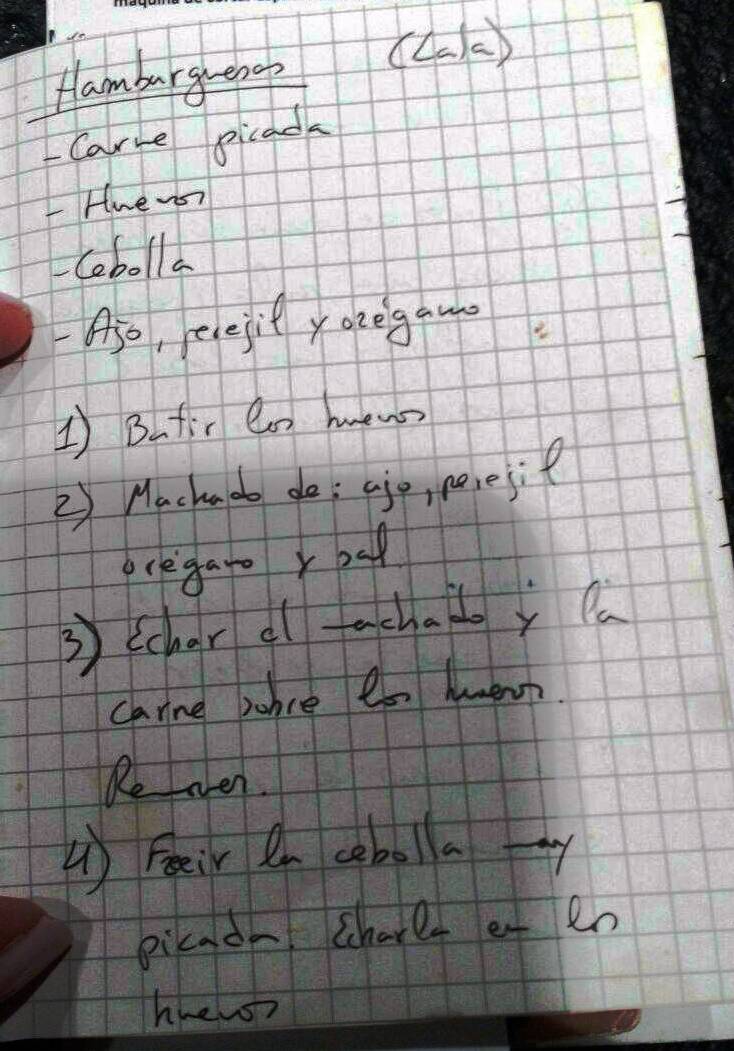 Hamburguesas (Lala)
- Carne picada
- Huevos
- Cebolla
- Ajo, perejil y orégano
1) Batir los huevos
2) Machado de: ajo, perejil
orégano y sal
3) Echar el machado y la
carne sobre los huevos.
Remover.
4) Freir la cebolla muy
picada. Echarla en los
huevos